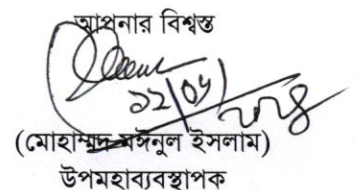 আপনার বিশ্বস্ত
১২/০৬/
(মোহাম্মদ মঈনুল ইসলাম)
উপমহাব্যবস্থাপক